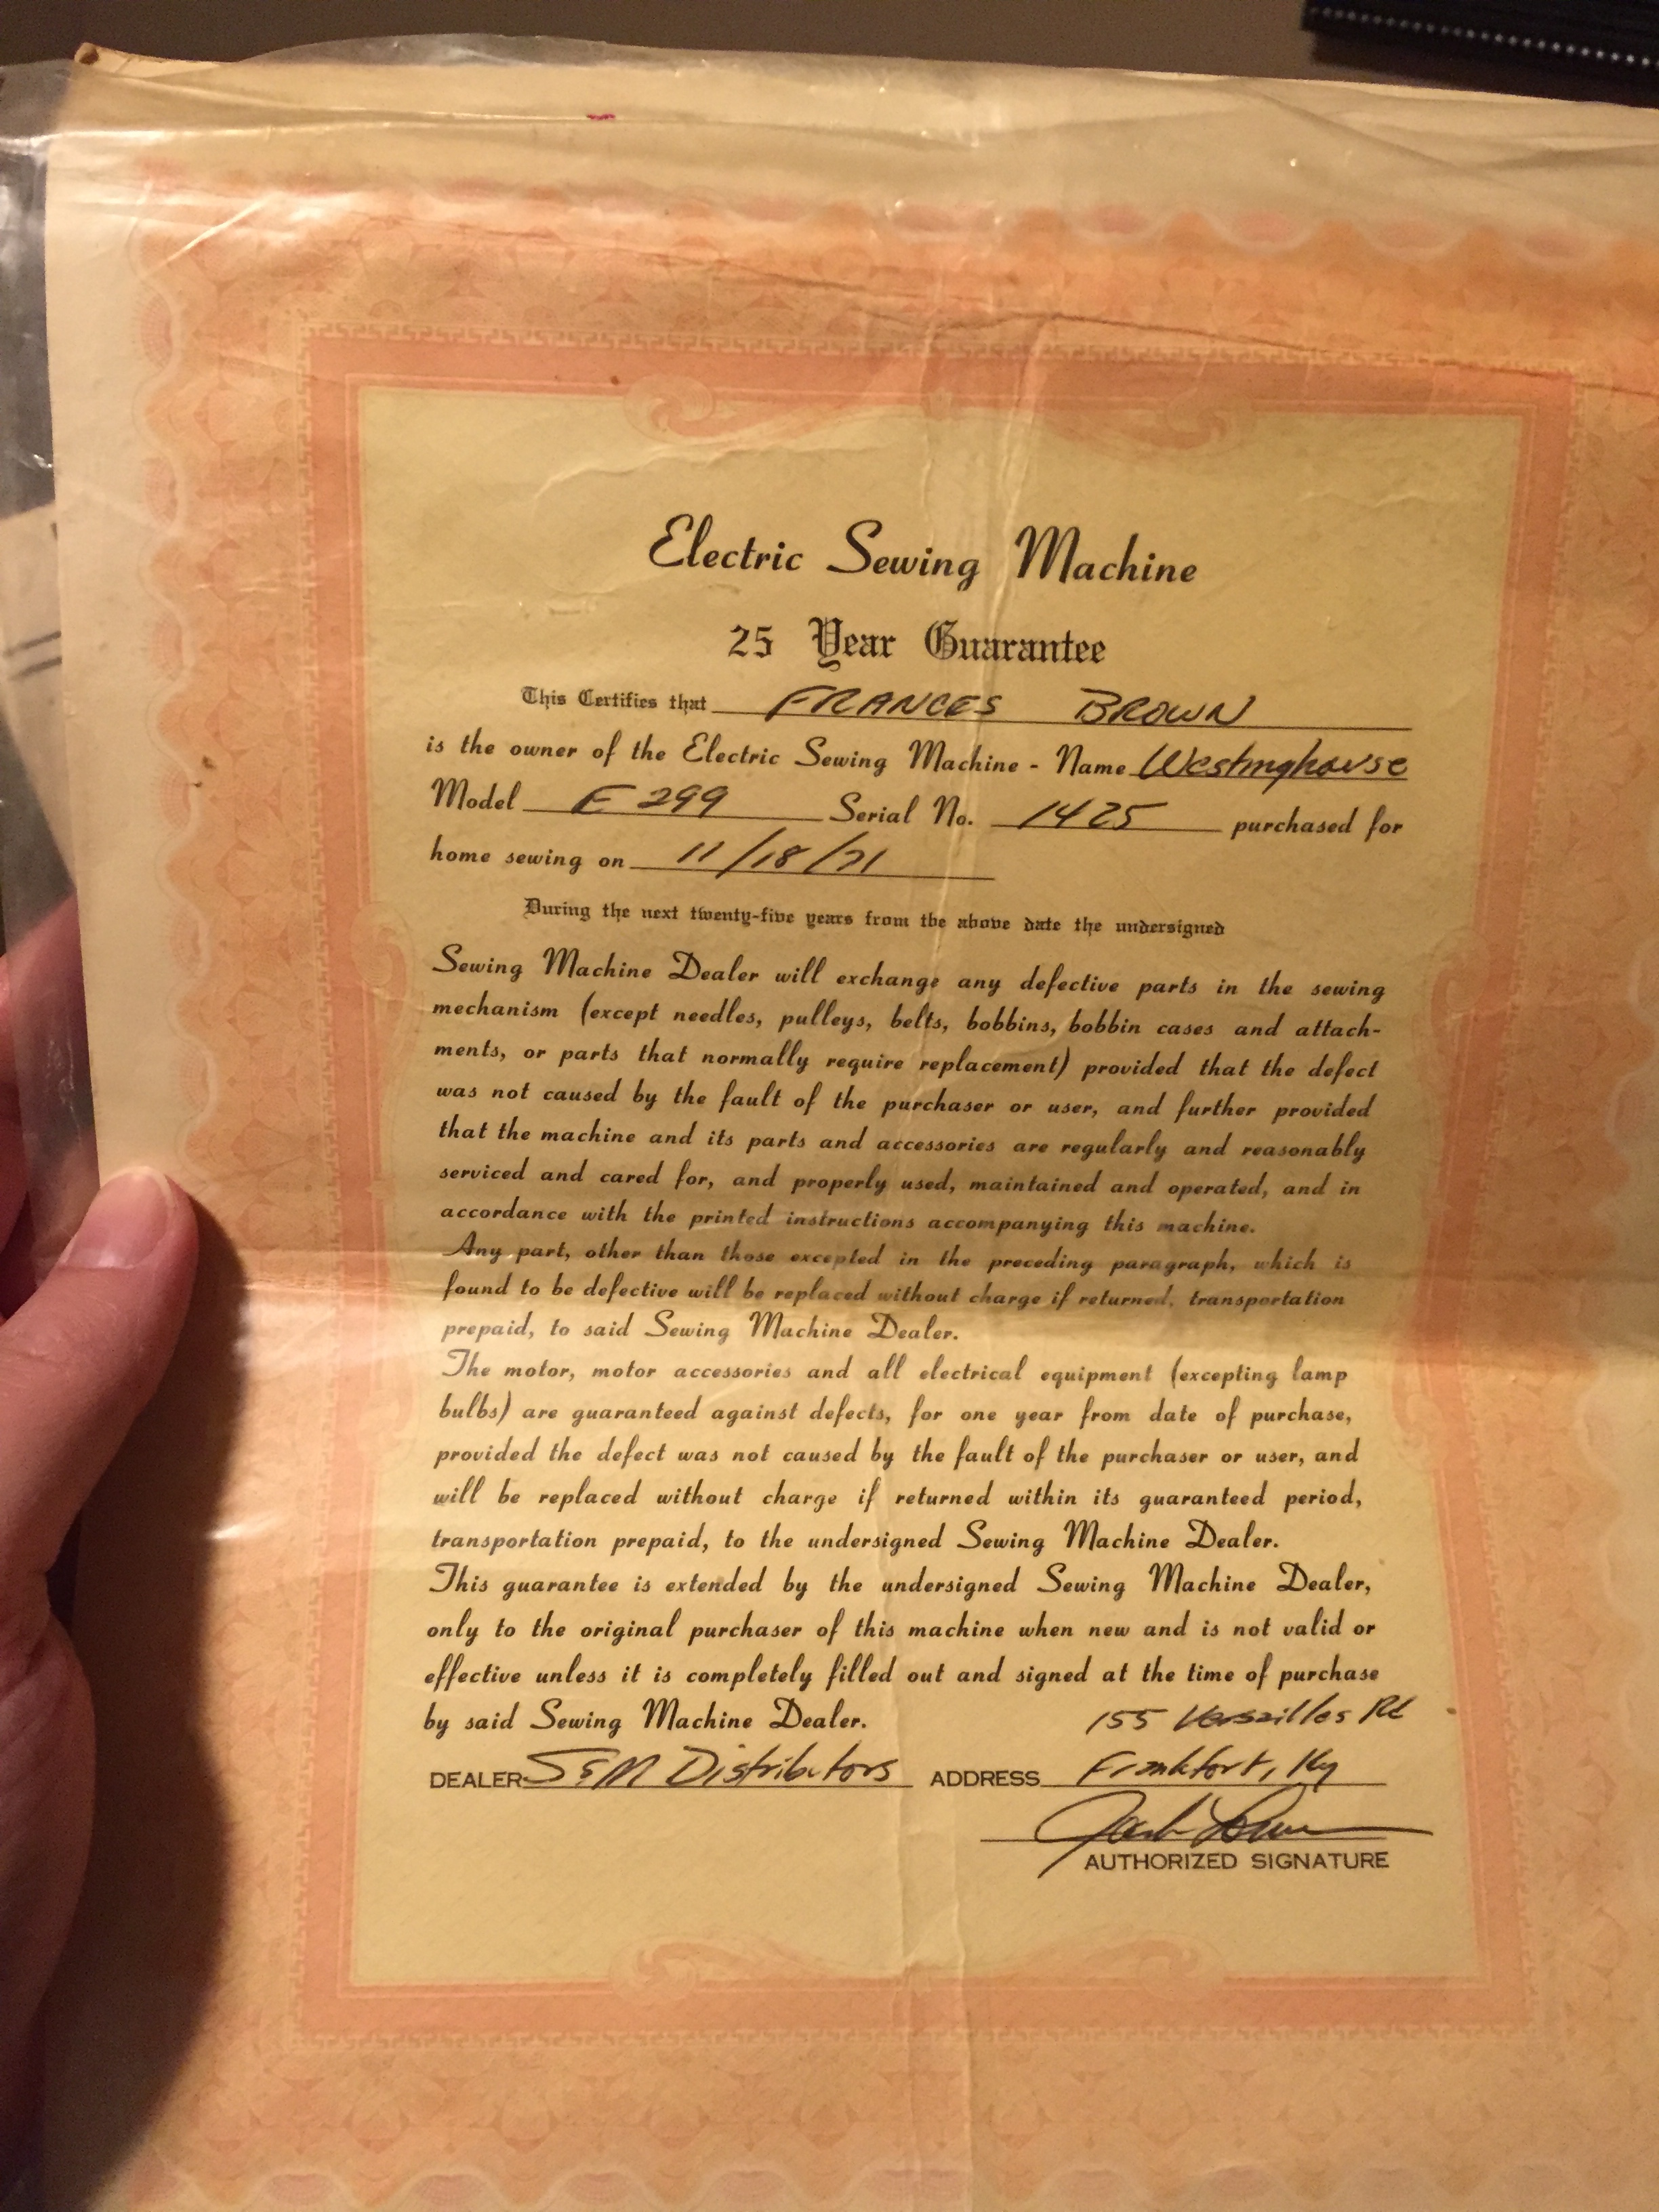 Electric Sewing Machine
25 Year Guarantee
This Certifies that FRANCES BROWN
is the owner of the Electric Sewing Machine - Name Westinghouse
Model E 299 Serial No. 1425 purchased for
home sewing on 11/18/71
During the next twenty-five years from the above date the undersigned
Sewing Machine Dealer will exchange any defective parts in the sewing
mechanism (except needles, pulleys, belts, bobbins, bobbin cases and attach-
ments, or parts that normally require replacement) provided that the defect
was not caused by the fault of the purchaser or user, and further provided
that the machine and its parts and accessories are regularly and reasonably
serviced and cared for, and properly used, maintained and operated, and in
accordance with the printed instructions accompanying this machine.
Any part, other than those excepted in the preceding paragraph, which is
found to be defective will be replaced without charge if returned, transportation
prepaid, to said Sewing Machine Dealer.
The motor, motor accessories and all electrical equipment (excepting lamp
bulbs) are guaranteed against defects, for one year from date of purchase,
provided the defect was not caused by the fault of the purchaser or user, and
will be replaced without charge if returned within its guaranteed period,
transportation prepaid, to the undersigned Sewing Machine Dealer.
This guarantee is extended by the undersigned Sewing Machine Dealer,
only to the original purchaser of this machine when new and is not valid or
effective unless it is completely filled out and signed at the time of purchase
by said Sewing Machine Dealer. 155 Versailles Rd
DEALER S&M Distributors ADDRESS Frankfort, Ky
AUTHORIZED SIGNATURE